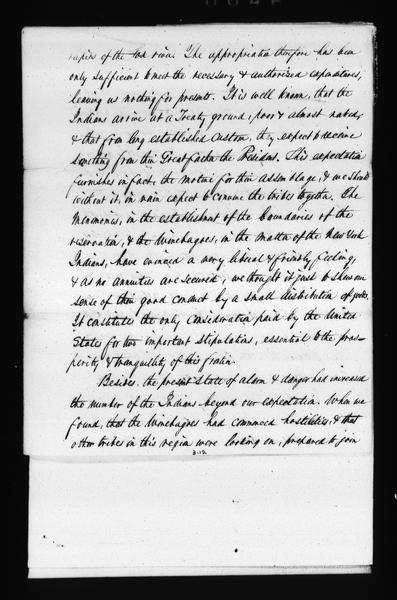 rapids of the Fox river. The appropriation therefore has been
only sufficient to meet the necessary & authorized expenditures,
leaving us nothing for presents. It is well known, that the
Indians arrive at a Treaty ground, poor & almost naked,
& that from long established custom, they expect to receive
something from their Great father the President. This expectation
furnishes in fact, the motive for their assemblage, & we should
without it, in vain expect to convene the tribes together. The
Menomonies, in the establishment of the boundaries of the
reservation, & the Winebagoes, in the matter of the New York
Indians, have evinced a very liberal & friendly feeling,
& as no annuities are secured, we thought it just to shew our
sense of their good conduct by a small distribution of goods.
It constitutes the only consideration paid by the United
States for two important stipulations, essential to the pros-
perity & tranquility of this frontier.
Besides, the present state of alarm & danger had increased
the number of the Indians beyond our expectation. When we
found, that the Winebagoes had commenced hostilities, & that
other tribes in this region were looking on, prepared to join
3-12